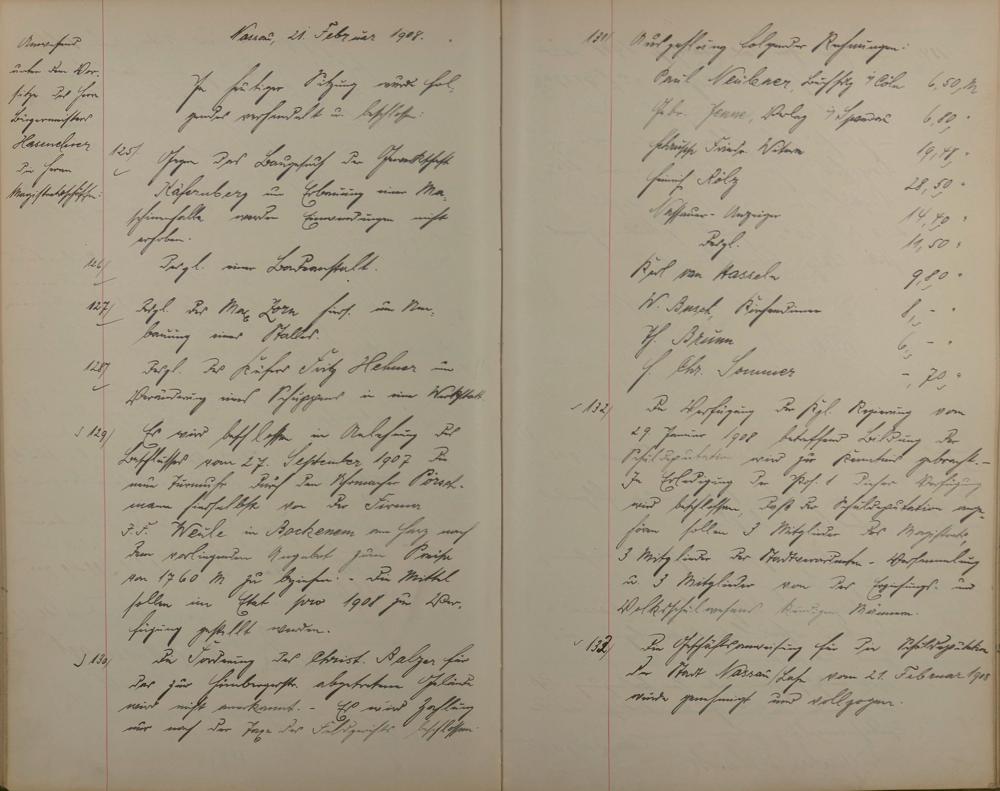 Nassau, 21. Februar 1908.
Anwesend
unter dem Vor-
sitze des Herrn
Bürgermeisters
Hasenclever
die Herren
Magistratsschöffen:
In heutiger Sitzung wurde fol-
gendes verhandelt u. beschlossen:
125/ Gegen das Baugesuch der Gewerkschaft
Käfernberg um Erbauung einer Ma-
schinenhalle werden Einwendungen nicht
erhoben.
126/ Desgl. einer Badeanstalt.
127/ Desgl. des Max Zorn hier. um Er-
bauung eines Stalles.
128/ Desgl. des Küfers Fritz Hehner um
Veränderung eines Schuppens in eine Werkstatt.
129/ Es wird beschlossen in Ausführung des
Beschlusses vom 27. September 1907 die
neue Turmuhr durch den Uhrmacher
mann hierselbst von der Firma
J.F. Weule in Bockenem am Harz nach
dem vorliegenden Angebot zum Preise
von 1760 M zu beziehen. - Die Mittel
sollen im Etat pro 1908 zur Ver-
fügung gestellt werden.
130/ Die Forderung des Christ. Balzer für
das zur abgetretene Gelände
wird nicht anerkannt. - Es wird Zahlung
nur nach der Taxe des Feldgerichts beschlossen.
131/ Auszahlung folgender Rechnungen:
Paul Neubner, Buchhdlg i/ Cöln 6,50 M
Gebr. Jenne, Verlag i/ Spandau 6,80 "
19,48 "
Heinrich Kölz 28,50 "
Nassauer-Anzeiger 14,40 "
Desgl. 11,50 "
Karl von Hasseln 9,80 "
W. Busch, Kirchendiener 8, - "
Ph. Brunn 6, - "
H. Chr. Sommer -,70 "
132/ Die Verfügung der Kgl. Regierung vom
29 Januar 1908 betreffend Bildung der
Schuldeputation wird zur Kenntnis gebracht. -
In Erledigung der Pos. 1 dieser Verfügung
wird beschlossen, daß der Schuldeputation ange-
hören sollen 3 Mitglieder des Magistrats
3 Mitglieder der Stadtverordneten-Versammlung
u. 3 Mitglieder von des Erziehungs- und
Volksschulwesens kundigen Männern.
133/ Die Geschäftsanweisung für die Schuldeputation
der Stadt Nassau/Lahn vom 21. Februar 1908
wurde genehmigt und vollzogen.